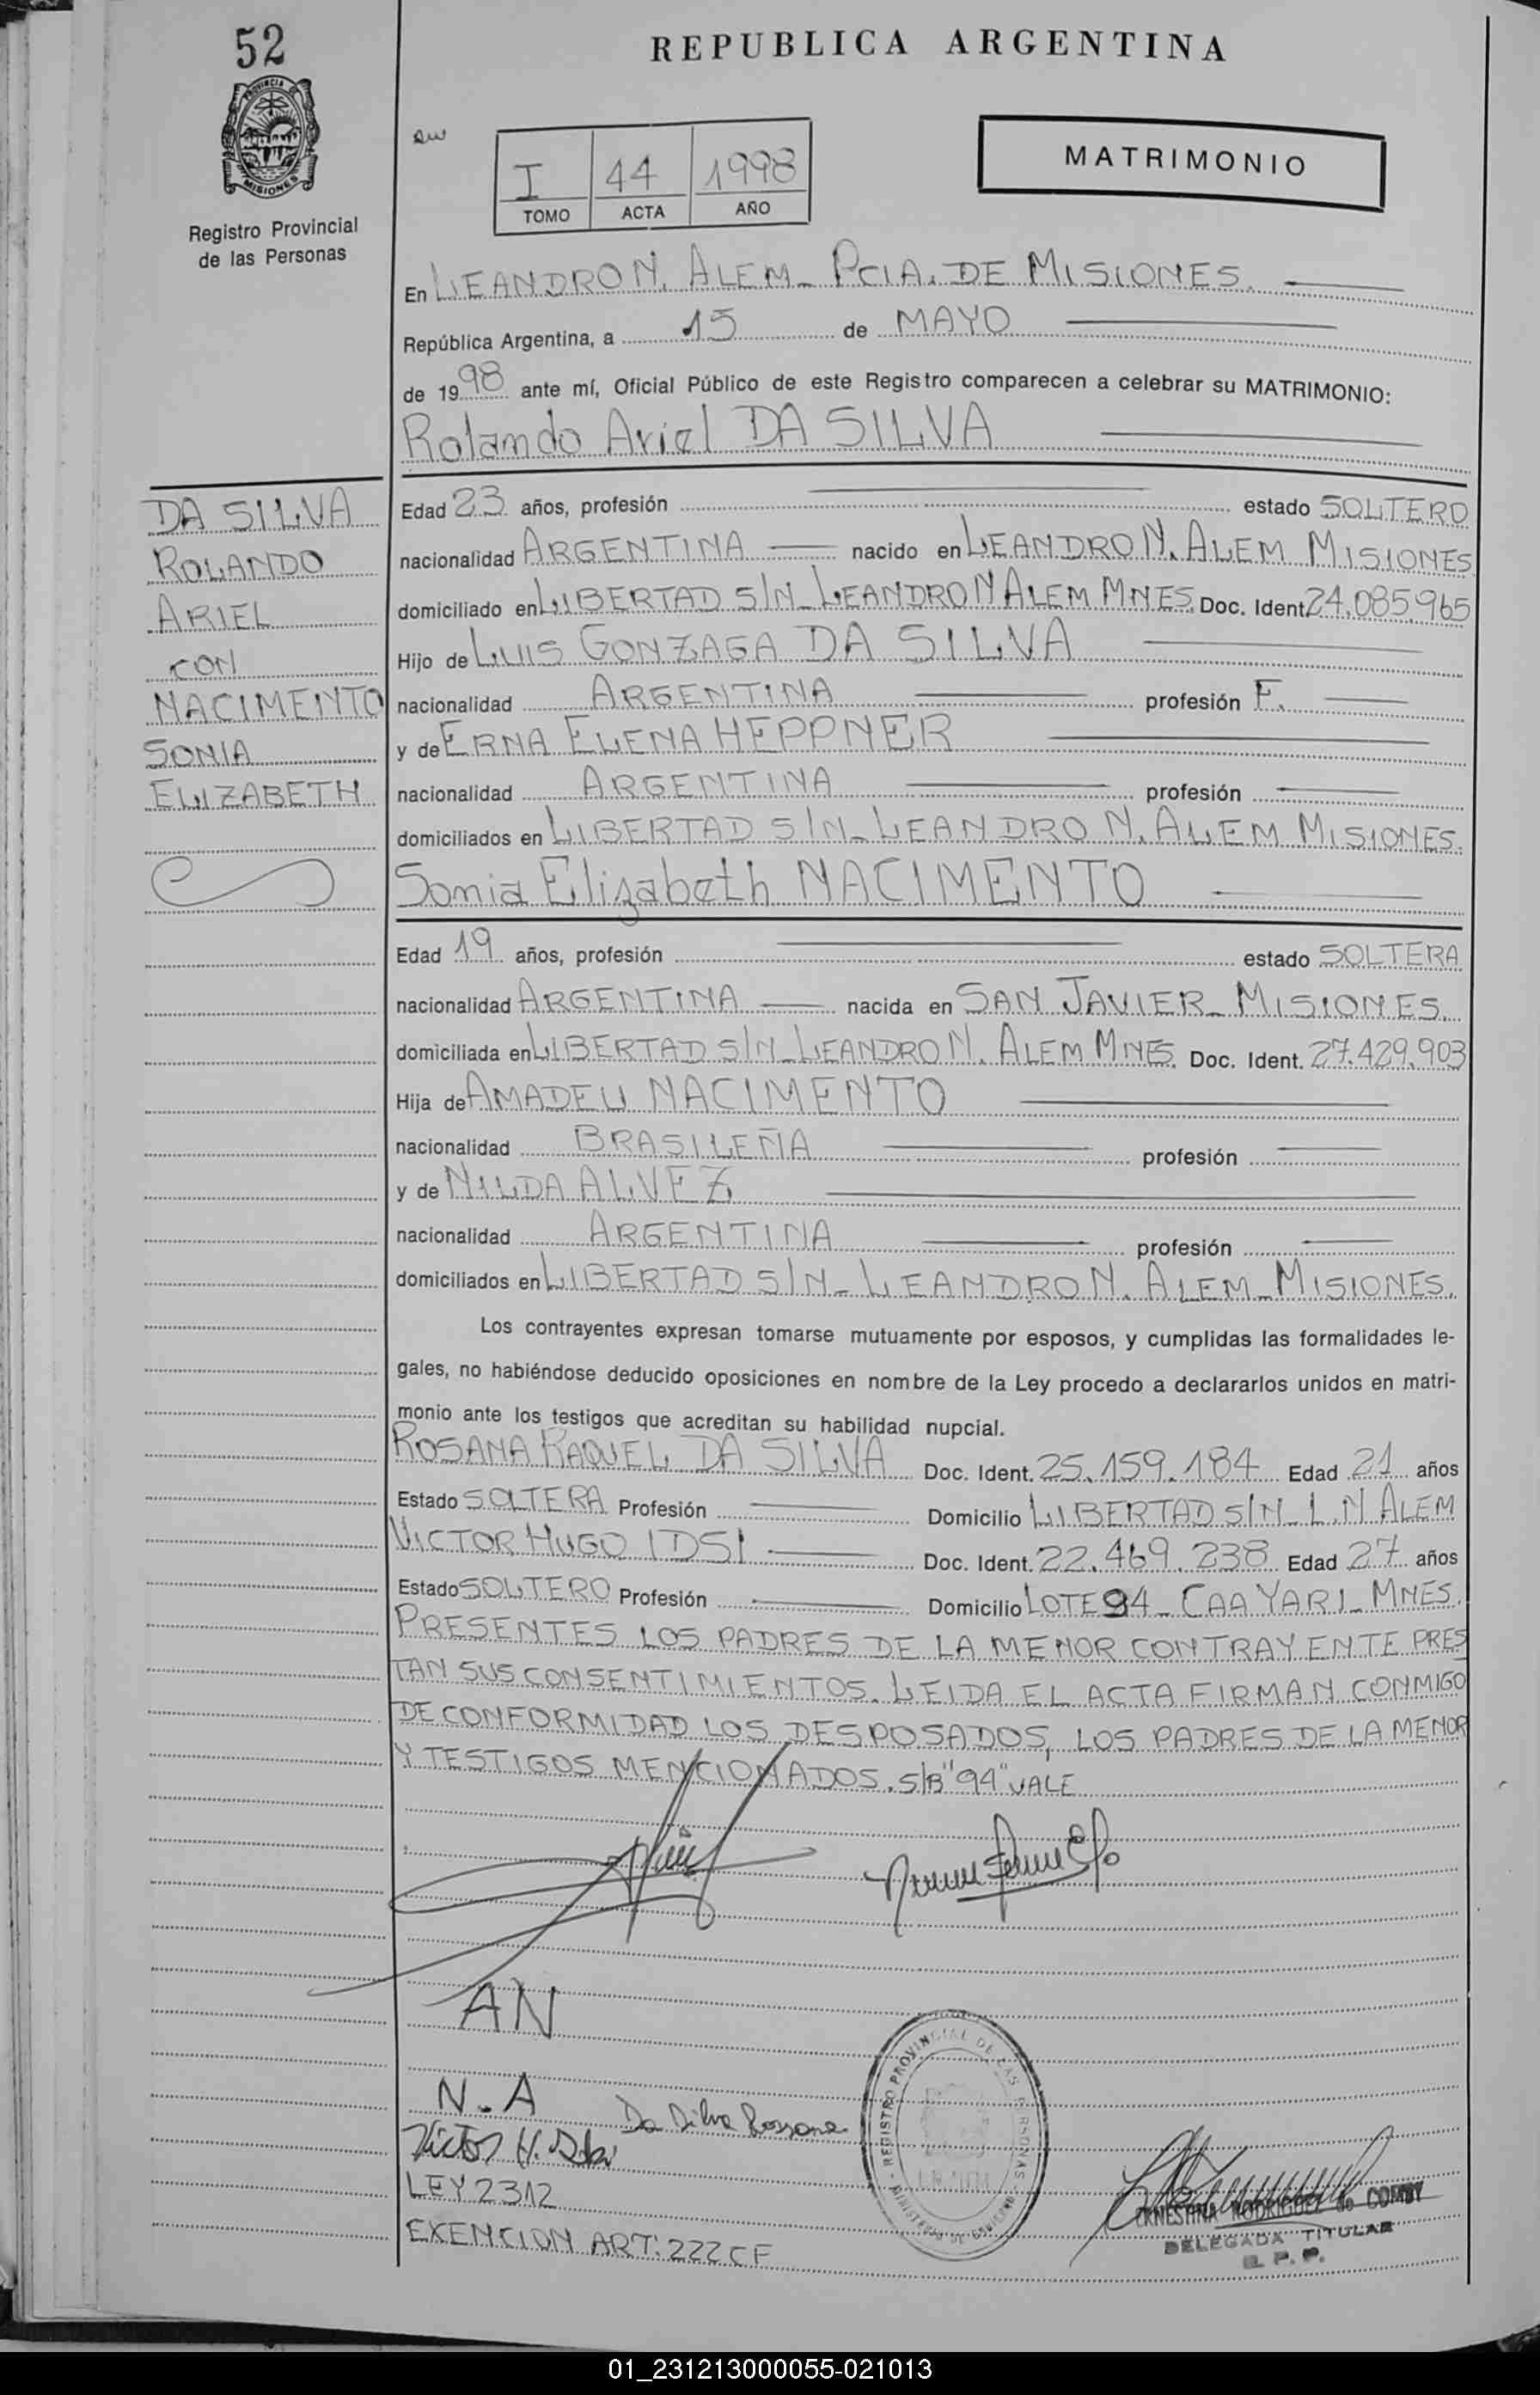 52
REPUBLICA ARGENTINA
PROVINCIA DE
MISIONES
Registro Provincial
de las Personas
I 44 1998
TOMO ACTA AÑO
MATRIMONIO
En LEANDRO N. ALEM - PCIA. DE MISIONES.
República Argentina, a 15 de MAYO
de 1998 ante mí, Oficial Público de este Registro comparecen a celebrar su MATRIMONIO:
Rolando Ariel DA SILVA
DA SILVA
ROLANDO
ARIEL
CON
NACIMENTO
SONIA
ELIZABETH
Edad 23 años, profesión estado SOLTERO
nacionalidad ARGENTINA nacido en LEANDRO N. ALEM MISIONES
domiciliado en LIBERTAD S/N - LEANDRO N ALEM MNES. Doc. Ident. 24.085.965
Hijo de LUIS GONZAGA DA SILVA
nacionalidad ARGENTINA profesión F.
y de ERNA ELENA HEPPNER
nacionalidad ARGENTINA profesión
domiciliados en LIBERTAD S/N - LEANDRO N. ALEM MISIONES.
Sonia Elizabeth NACIMENTO
Edad 19 años, profesión estado SOLTERA
nacionalidad ARGENTINA nacida en SAN JAVIER - MISIONES.
domiciliada en LIBERTAD S/N - LEANDRO N. ALEM MNES. Doc. Ident. 27.429.903
Hija de AMADEU NACIMENTO
nacionalidad BRASILEÑA profesión
y de NILDA ALVEZ
nacionalidad ARGENTINA profesión
domiciliados en LIBERTAD S/N - LEANDRO N. ALEM - MISIONES.
Los contrayentes expresan tomarse mutuamente por esposos, y cumplidas las formalidades le-
gales, no habiéndose deducido oposiciones en nombre de la Ley procedo a declararlos unidos en matri-
monio ante los testigos que acreditan su habilidad nupcial.
ROSANA RAQUEL DA SILVA Doc. Ident. 25.159.184 Edad 21 años
Estado SOLTERA Profesión Domicilio LIBERTAD S/N - L.N ALEM
VICTOR HUGO IDSI Doc. Ident. 22.469.238 Edad 27 años
Estado SOLTERO Profesión Domicilio LOTE 94 - CAA YARI - MNES.
PRESENTES LOS PADRES DE LA MENOR CONTRAYENTE PRES
TAN SUS CONSENTIMIENTOS. LEIDA EL ACTA FIRMAN CONMIGO
DE CONFORMIDAD LOS DESPOSADOS, LOS PADRES DE LA MENOR
Y TESTIGOS MENCIONADOS. S/B "94" VALE
AN
N. A Da Silva Rossana
Victor H.
LEY 2312
EXENCION ART. 222 CF
REGISTRO PROVINCIAL DE LAS PERSONAS
MINISTERIO DE GOBIERNO
ERNESTINA RODRIGUEZ de
DELEGADA TITULAR
R. P. P.
01_231213000055-021013